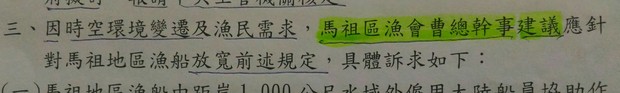 三、因時空環境變遷及漁民需求，馬祖區漁會曹總幹事建議應針
對馬祖地區漁船放寬前述規定，具體訴求如下：
(一)馬祖地區漁船由距岸1,000公尺水域外僱用大陸船員協助作